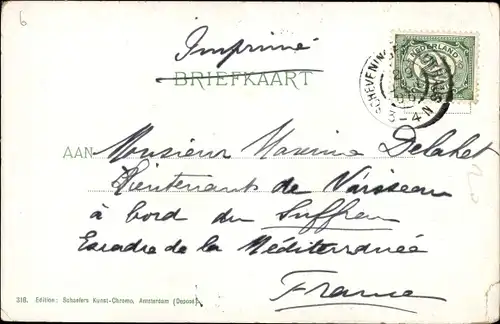 6
Imprimé
BRIEFKAART
NEDERLAND
SCHEVENINGEN
3-4 N
AAN Monsieur Maxime Delahet
Lieutenant de Vaisseau
à bord du Suffren
Escadre de la Méditerranée
France
218. Edition: Schaefers Kunst-Chromo, Amsterdam (Deposé).